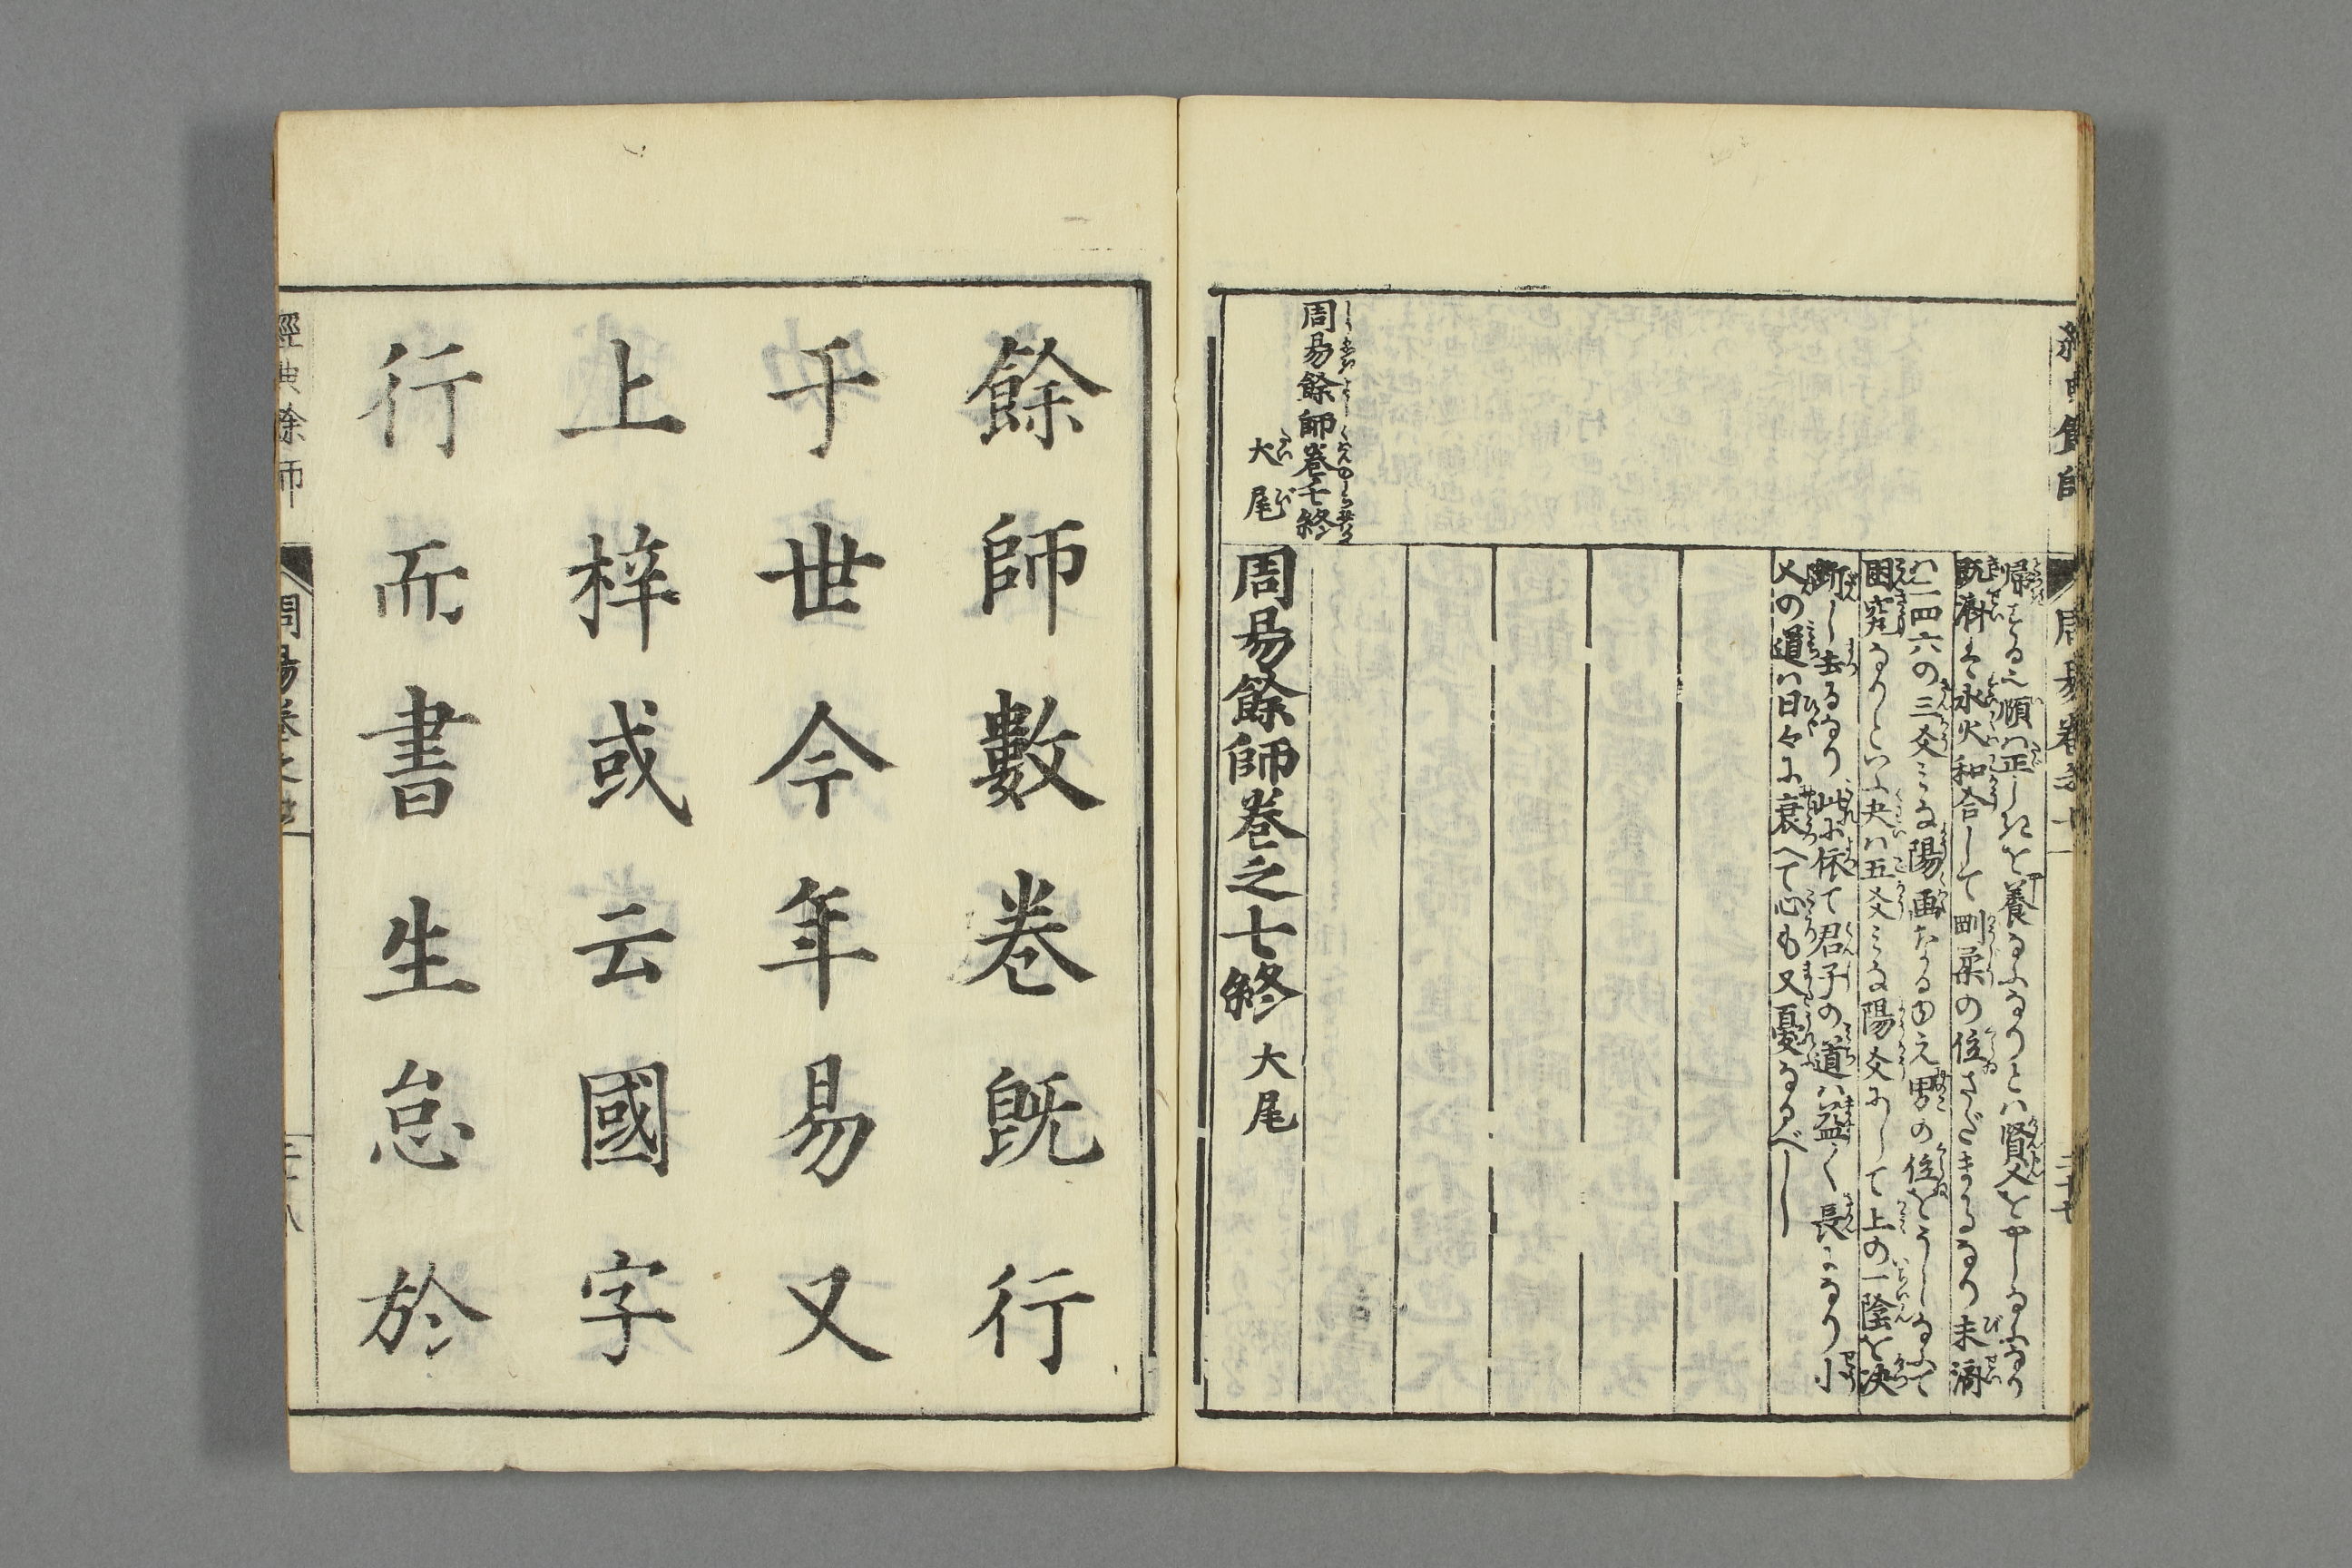 周易卷之七
帰する也頤ハ正しきを養ふなりとハ賢人をやしなふなり
既濟ハ水火和合して剛柔の位さだまるなり未濟
ハ二四六の三爻ミな陽画なるゆえ男の位をうしなふて
困窮なりといふ夬ハ五爻ミな陽爻にして上の一陰を决
断し去るなり此に依て君子の道ハ益〱長くなり小
人の道ハ日々に衰へて心も又憂るべし
周易餘師卷七終
大尾
周易餘師卷之七終 大尾
餘師數卷既行
于世今年易又
上梓或云國字
行而書生怠於
經典餘師
周易卷之七
三十八